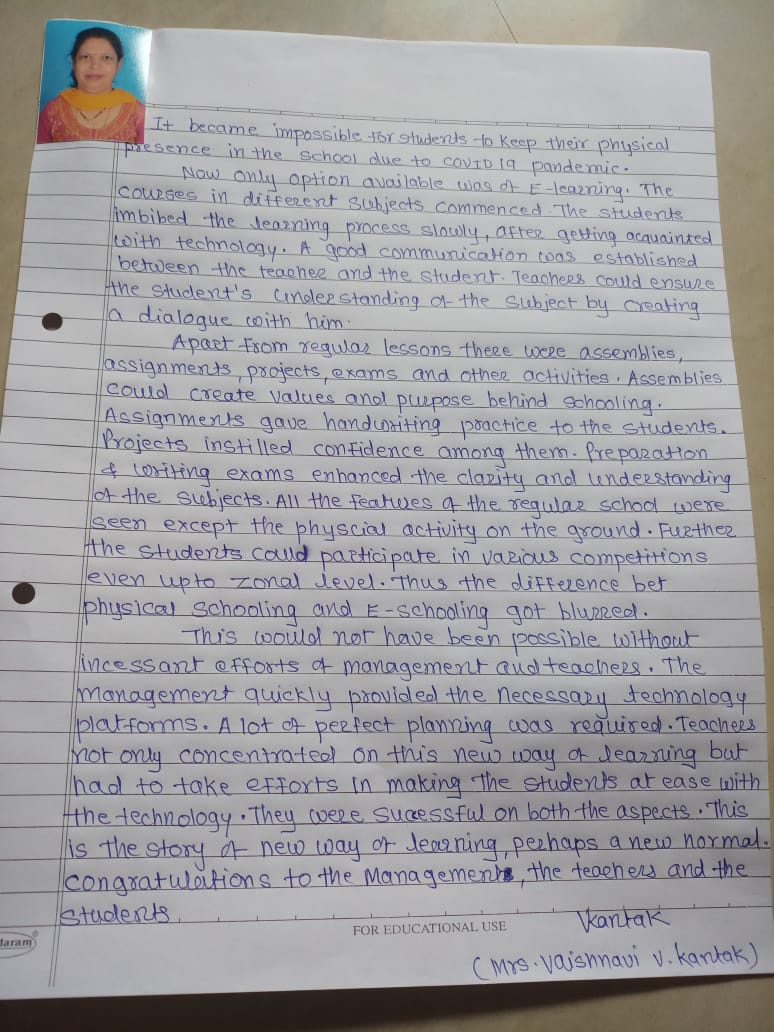 It became impossible for students to keep their physical
presence in the school due to COVID 19 pandemic.
Now only option available was of E-learning. The
courses in different subjects commenced. The students
imbibed the learning process slowly, after getting acquainted
with technology. A good communication was established
between the teacher and the student. Teachers could ensure
the student's understanding of the subject by creating
a dialogue with him.
Apart from regular lessons there were assemblies,
assignments, projects, exams and other activities. Assemblies
could create values and purpose behind schooling.
Assignments gave handwriting practice to the students.
Projects instilled confidence among them. Preparation
& writing exams enhanced the clarity and understanding
of the subjects. All the features of the regular school were
seen except the physcial activity on the ground. Further
the students could participate in various competitions
even upto zonal level. Thus the difference bet
physical schooling and E-schooling got blurred.
This would not have been possible without
incessant efforts of management and teachers. The
management quickly provided the necessary technology
platforms. A lot of perfect planning was required. Teachers
not only concentrated on this new way of learning but
had to take efforts in making the students at ease with
the technology. They were sucessful on both the aspects. This
is the story of new way of learning, perhaps a new normal.
congratulations to the Management, the teachers and the
students.
FOR EDUCATIONAL USE
Vkantak
(Mrs. Vaishnavi V. Kantak)
daram®